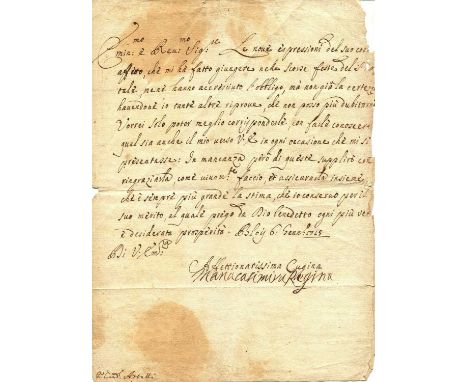 Em.mo e Rev.mo Sig.re Le nove espressioni del suo cor
affetto, che mi hà fatto giungere nelle scorse feste del S.
Natale, però hanno accresciuto l'obbligo, mà non già la certezza
havendone io tante altre riprove, che non posso più dubitarne
Vorrei solo poter meglio corrisponderle con farle conoscere
qual sia anche il mio verso V. E. in ogni occasione che mi si
presentasse: In mancanza però di queste supplirò con
ringraziarla come vivam.te faccio et assicurarla insieme
che è sempre più grande la stima, che io conservo per il
suo merito, al quale priego da Dio benedetto ogni più vera
e desiderata prosperità. Bloij 6 Genn.
Di V. Em.za
Affettionatissima Cugina
Maria Casimira Regina